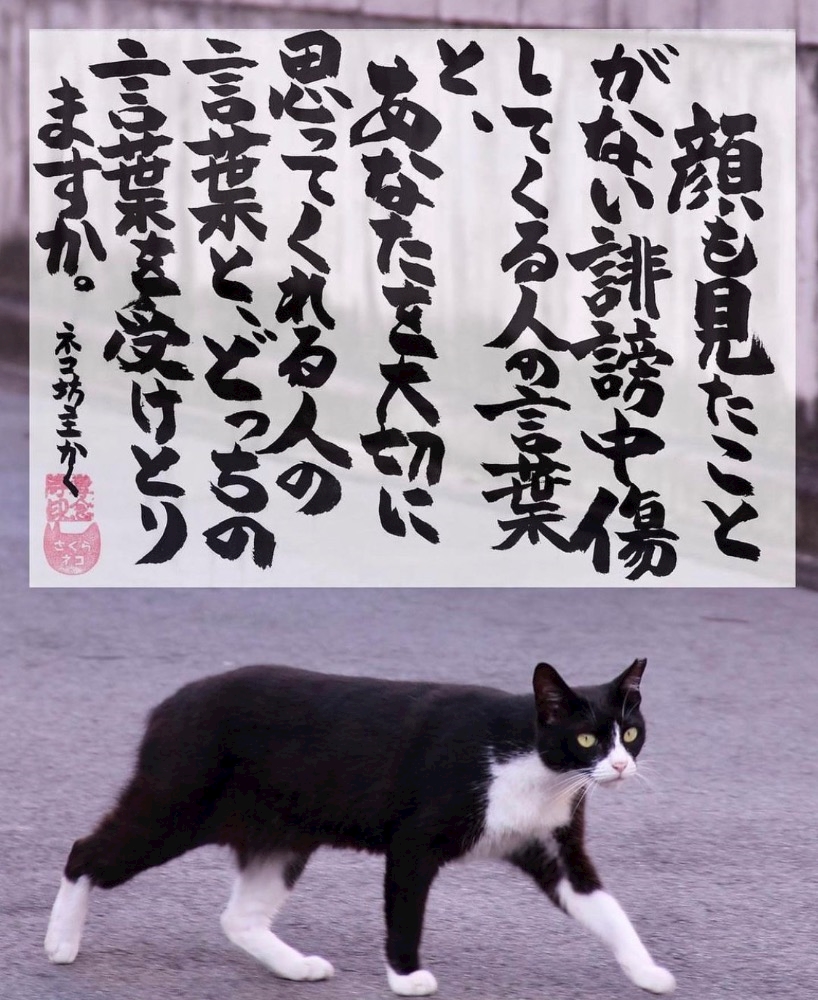 顔も見たこと
がない誹謗中傷
してくる人の言葉
と、
あなたを大切に
思ってくれる人の
言葉と、どっちの
言葉を受けとり
ますか。
ネコ坊主かく
さくら
ネコ